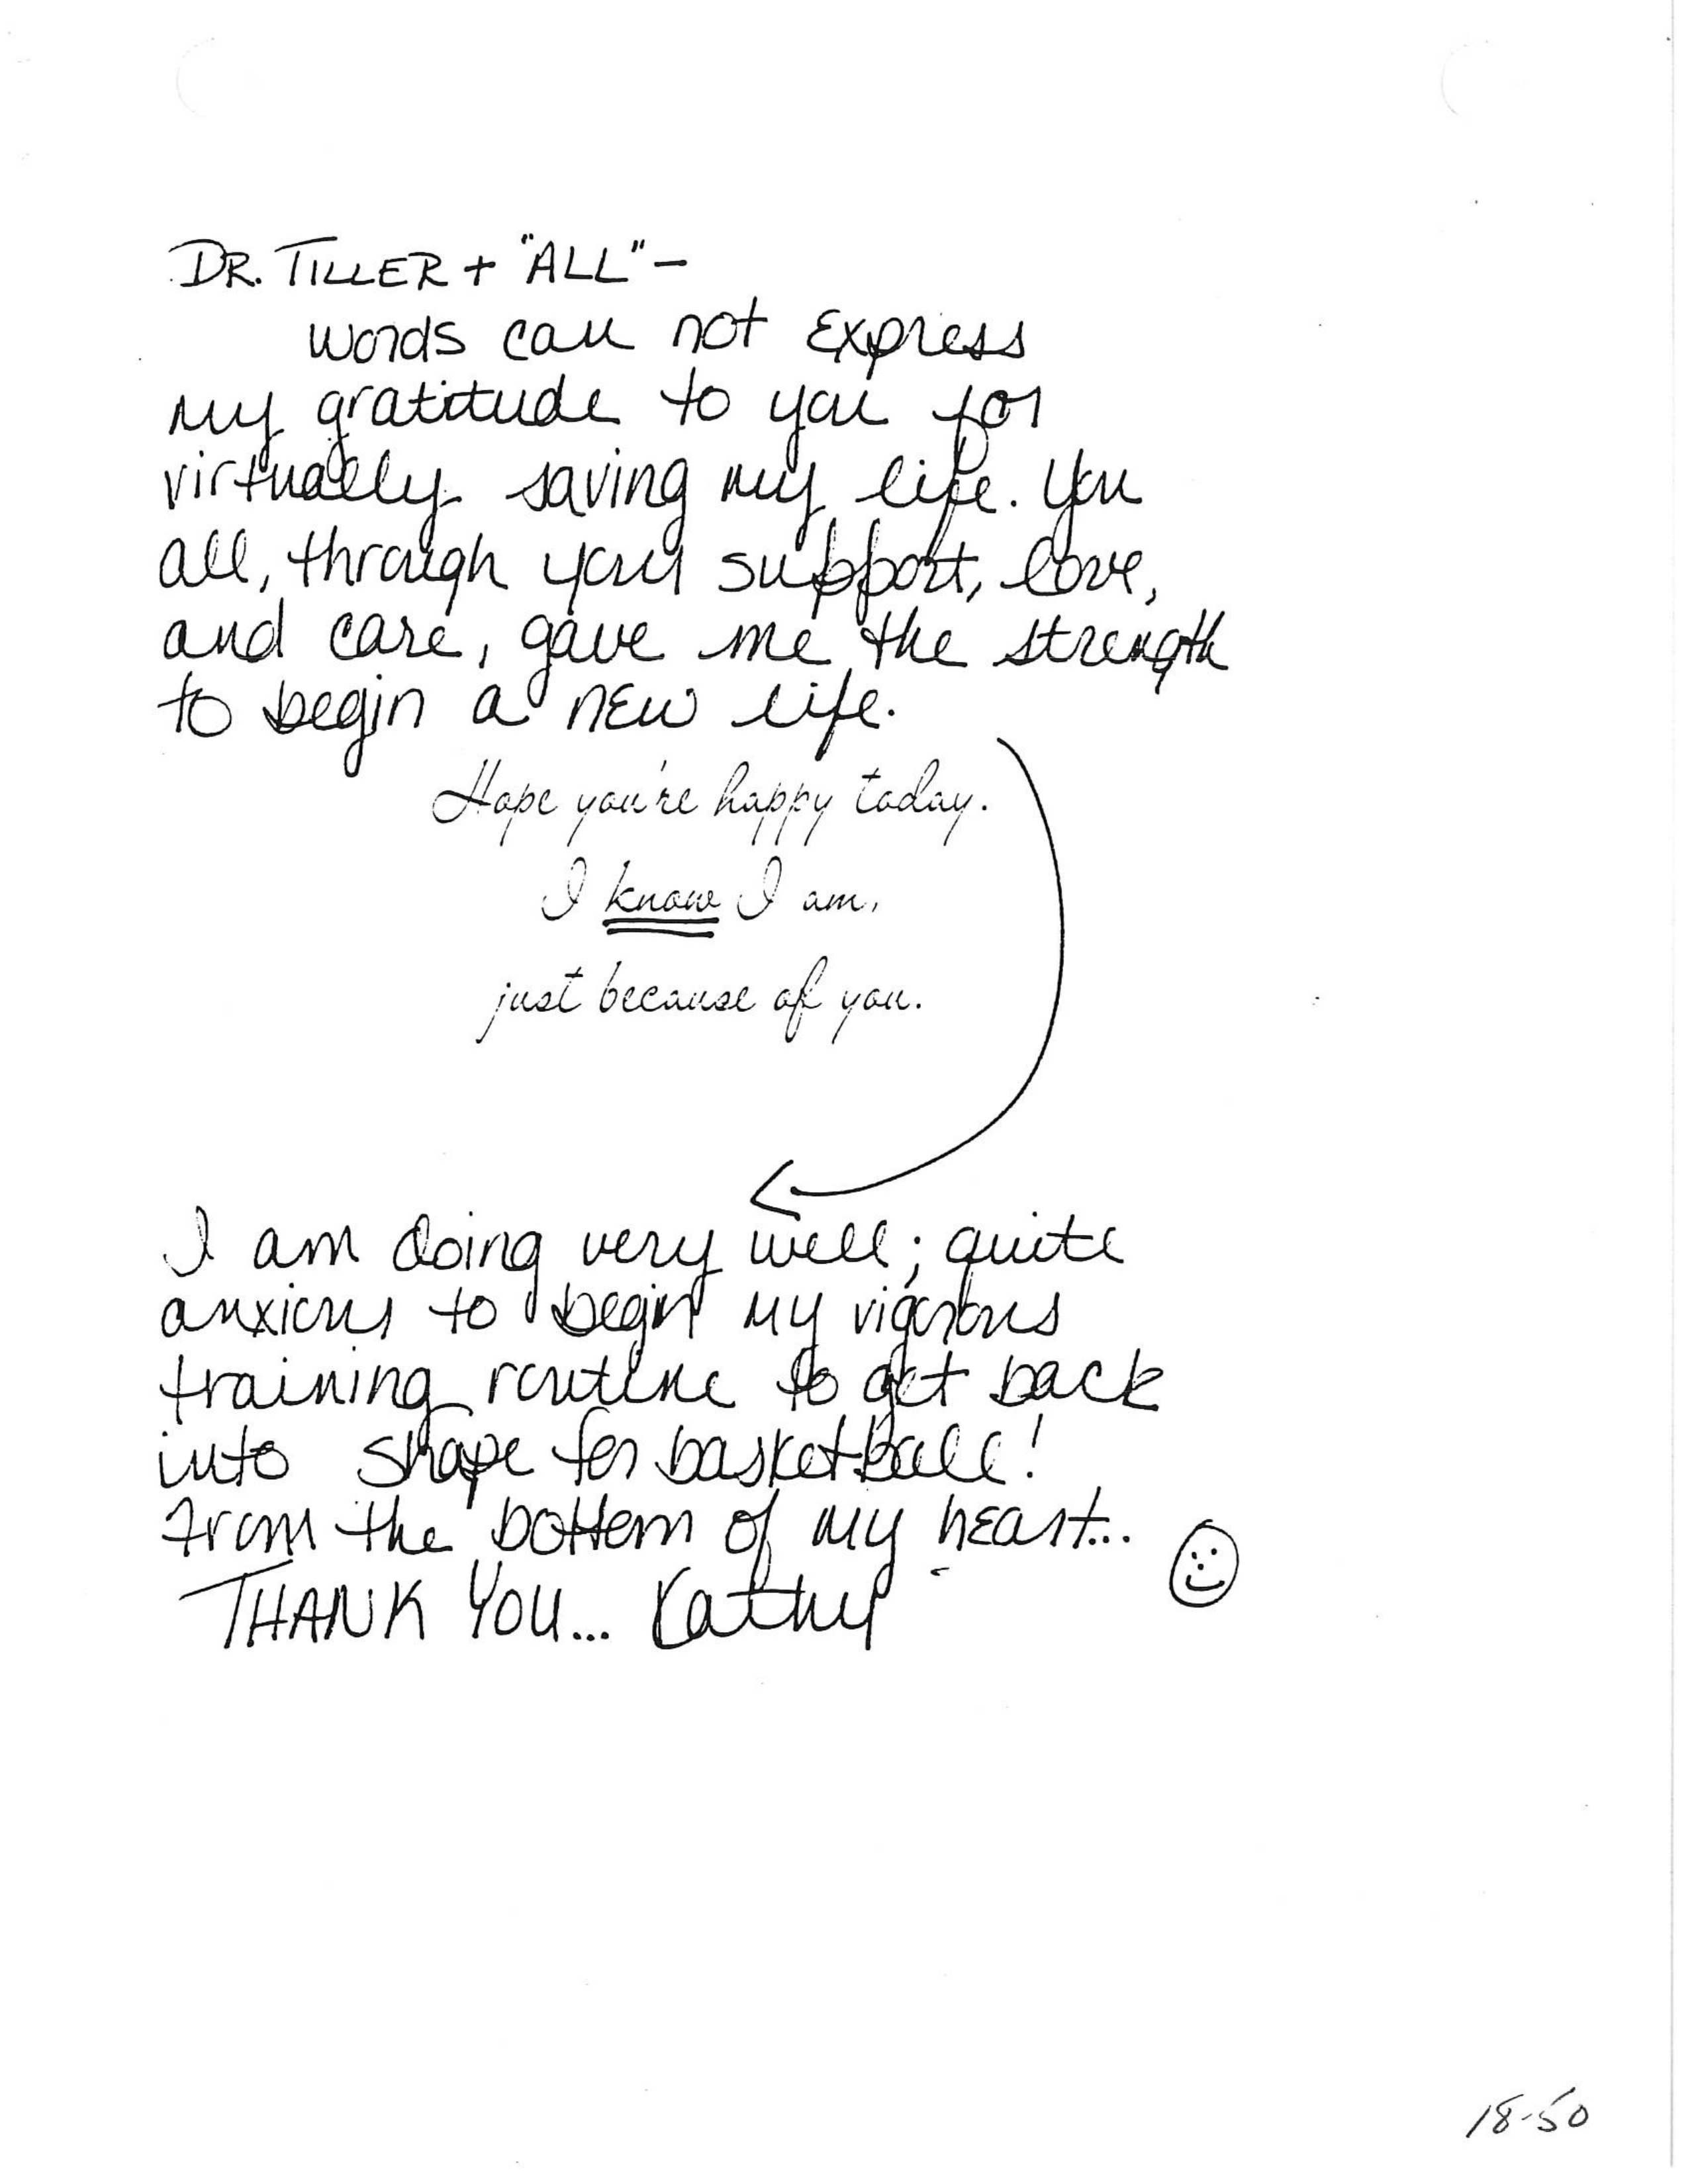 DR. TILLER + "ALL" -
words can not express
my gratitude to you for
virtually saving my life. You
all, through your support, love,
and care, gave me the strength
to begin a new life.
Hope you're happy today.
I know I am,
just because of you.
I am doing very well; quite
anxious to begin my vigorous
training routine to get back
into shape for basketball!
From the bottom of my heart...
THANK YOU... Kathy
18-50